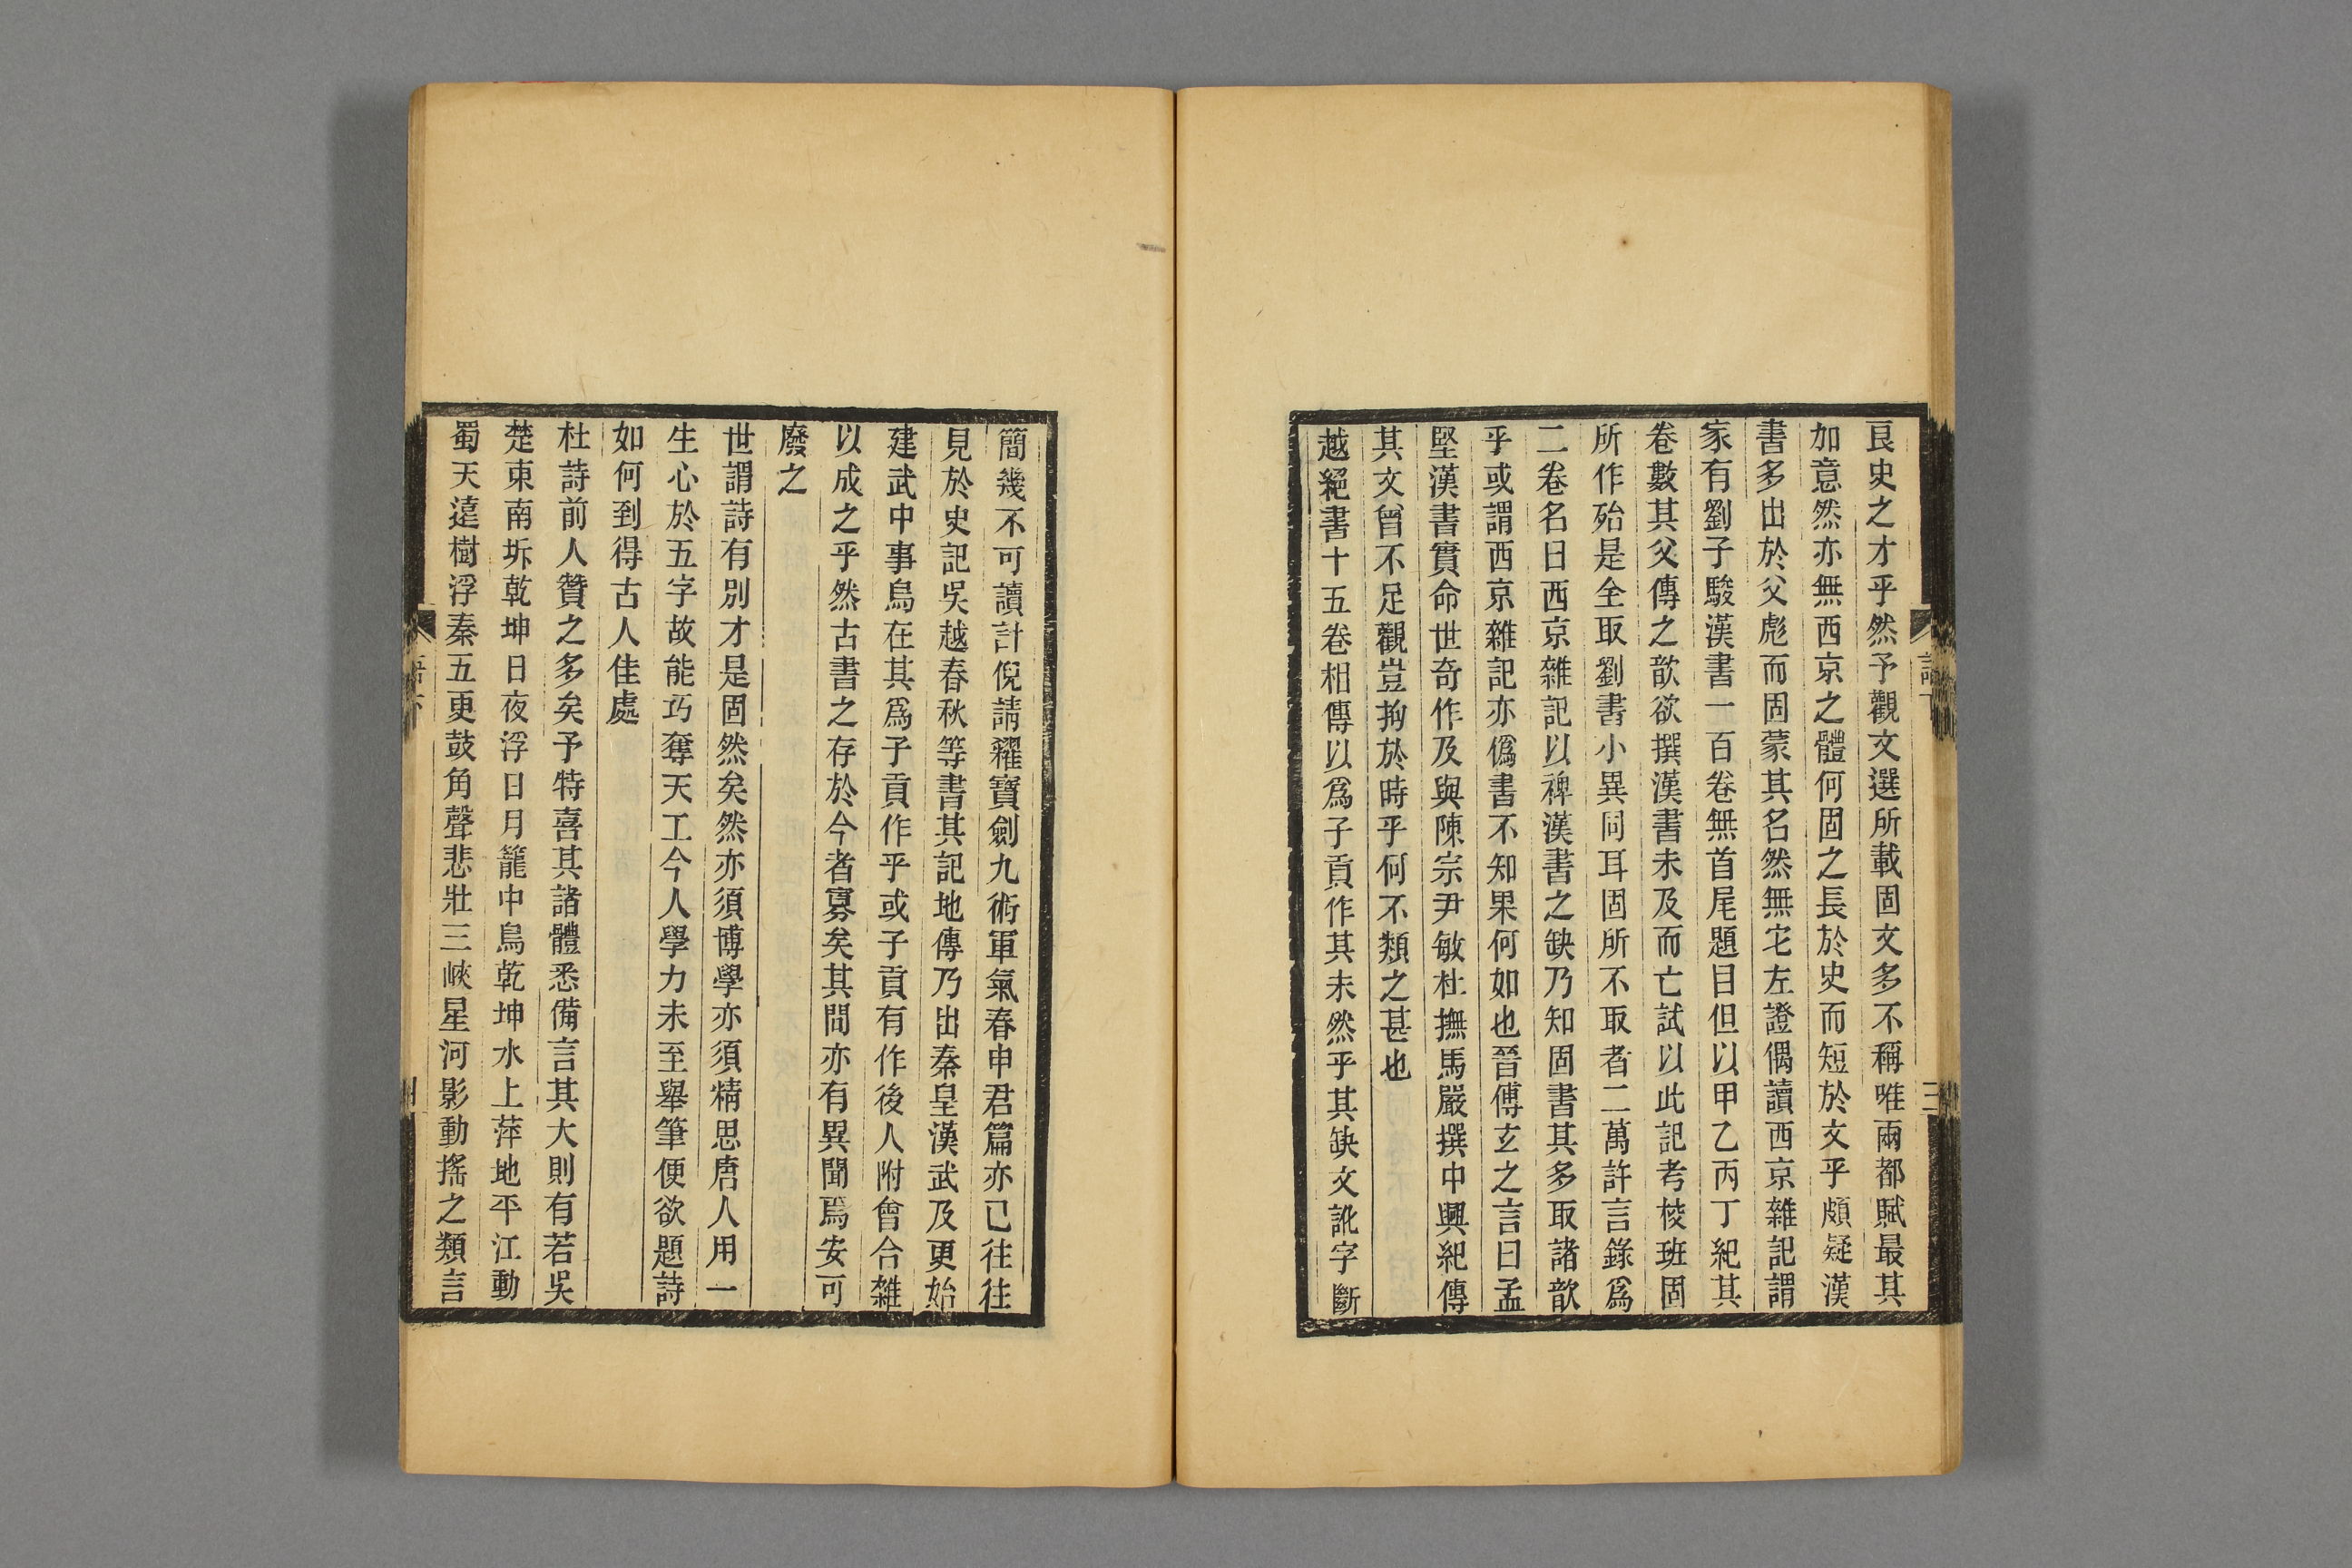 良史之才乎然予觀文選所載固文多不稱唯兩都賦最其
加意然亦無西京之體何固之長於史而短於文乎頗疑漢
書多出於父彪而固蒙其名然無它左證偶讀西京雜記謂
家有劉子駿漢書一百卷無首尾題目但以甲乙丙丁紀其
卷數其父傳之歆欲撰漢書未及而亡試以此記考校班固
所作殆是全取劉書小異同耳固所不取者二萬許言錄爲
二卷名曰西京雜記以裨漢書之缺乃知固書其多取諸歆
乎或謂西京雜記亦僞書不知果何如也晉傅玄之言曰孟
堅漢書實命世奇作及與陳宗尹敏杜撫馬嚴撰中興紀傳
其文曾不足觀豈拘於時乎何不類之甚也
越絕書十五卷相傳以爲子貢作其未然乎其缺文訛字斷
簡幾不可讀計倪請糴寶劍九術軍氣春申君篇亦已往往
見於史記吳越春秋等書其記地傳乃出秦皇漢武及更始
建武中事烏在其爲子貢作乎或子貢有作後人附會合雜
以成之乎然古書之存於今者寡矣其間亦有異聞焉安可
廢之
世謂詩有別才是固然矣然亦須博學亦須精思唐人用一
生心於五字故能巧奪天工今人學力未至舉筆便欲題詩
如何到得古人佳處
杜詩前人贊之多矣予特喜其諸體悉備言其大則有若吳
楚東南坼乾坤日夜浮日月籠中鳥乾坤水上萍地平江動
蜀天遠樹浮秦五更鼓角聲悲壯三峽星河影動搖之類言